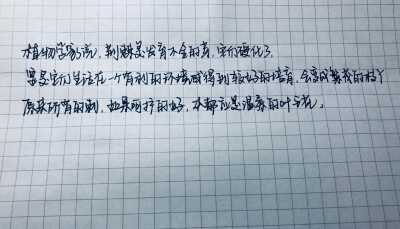 植物学家说，荆棘是发育不全的芽，它们硬化了，
要是它们生活在一个有利的环境或得到较好的培育，会变成繁茂的枝丫
原来所有的刺，如果呵护的好，本都应是温柔的叶与花。